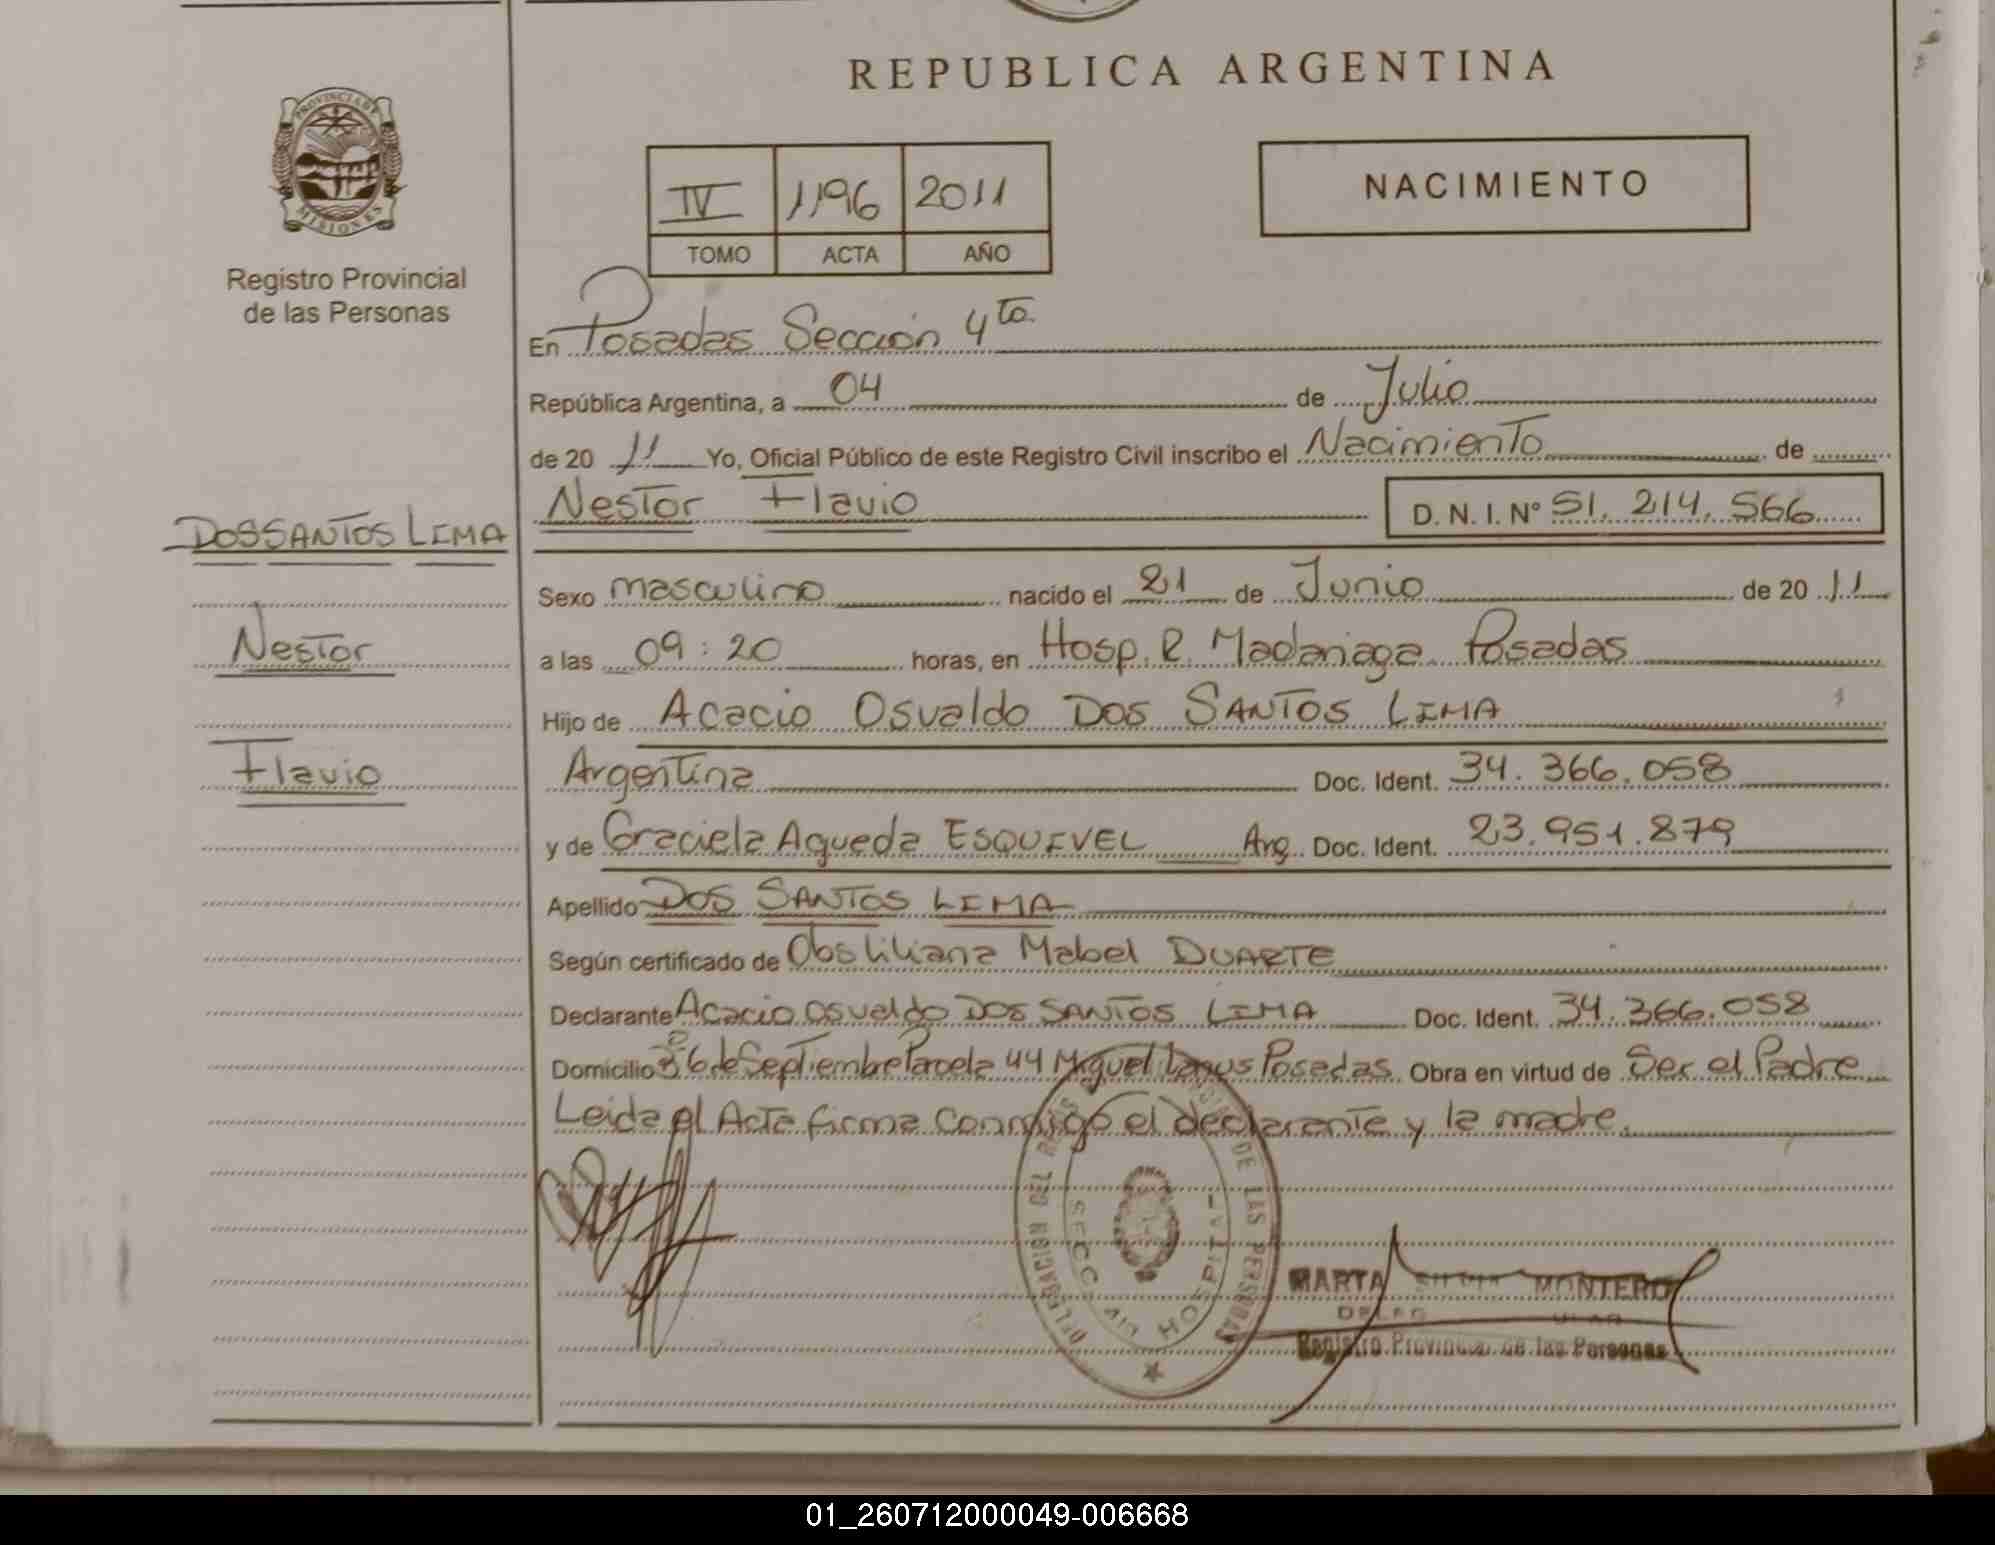 REPUBLICA ARGENTINA
PROVINCIA DE
MISIONES
Registro Provincial
de las Personas
IV 1196 2011
TOMO ACTA AÑO
NACIMIENTO
En Posadas Sección 4ta.
República Argentina, a 04 de Julio
de 20 11 Yo, Oficial Público de este Registro Civil inscribo el Nacimiento de
Nestor Flavio D. N. I. Nº 51. 214. 566
DOS SANTOS LIMA
Nestor
Flavio
Sexo masculino nacido el 21 de Junio de 20 11
a las 09:20 horas, en Hosp. R. Madariaga Posadas
Hijo de Acacio Osvaldo DOS SANTOS LIMA
Argentina Doc. Ident. 34. 366. 058
y de Graciela Agueda ESQUIVEL Arg. Doc. Ident. 23.951.879
Apellido DOS SANTOS LIMA
Según certificado de Obs Liliana Mabel DUARTE
Declarante Acacio Osvaldo DOS SANTOS LIMA Doc. Ident. 34. 366. 058
Domicilio 6 de Septiembre Parcela 44 Miguel Lanus Posadas Obra en virtud de Ser el Padre
Leida el Acta firma conmigo el declarante y la madre.
DELEGACION DEL DE LAS PERSONAS
SECC. HOSPITAL
MARTA MONTERO
Registro Provincial de las Personas
01_260712000049-006668